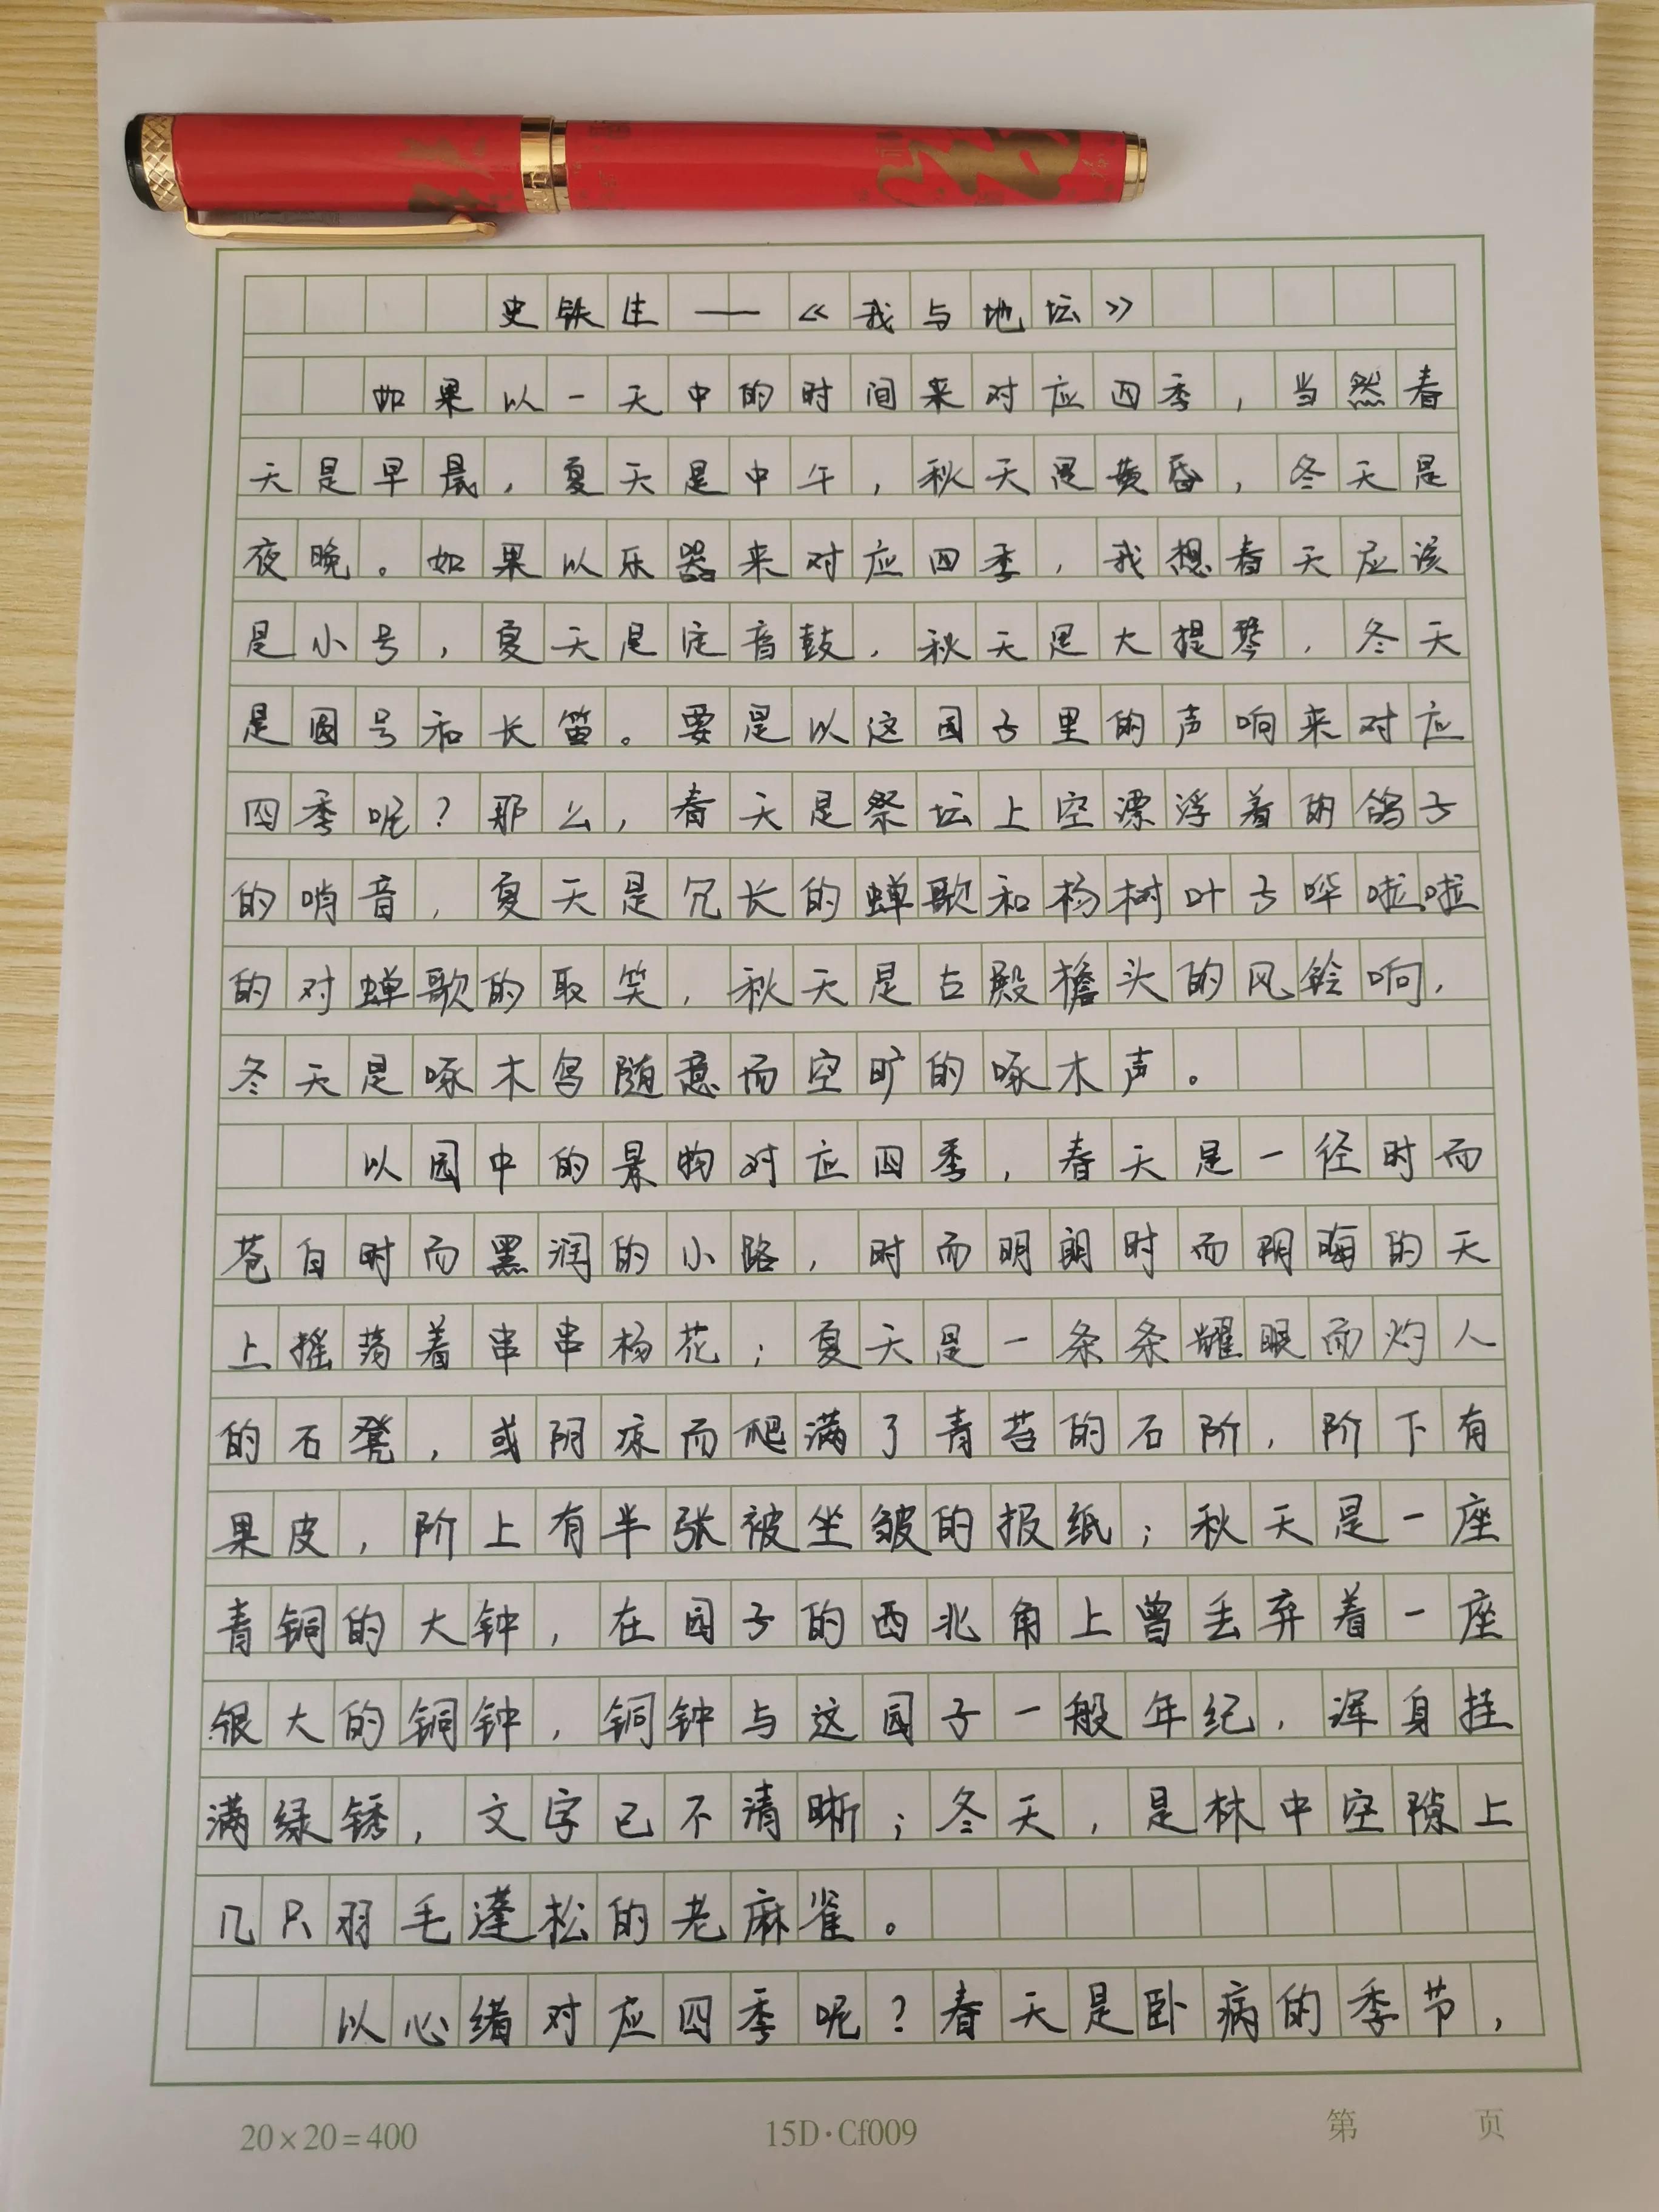 史铁生——《我与地坛》
如果以一天中的时间来对应四季，当然春
天是早晨，夏天是中午，秋天是黄昏，冬天是
夜晚。如果以乐器来对应四季，我想春天应该
是小号，夏天是定音鼓，秋天是大提琴，冬天
是圆号和长笛。要是以这园子里的声响来对应
四季呢？那么，春天是祭坛上空漂浮着的鸽子
的哨音，夏天是冗长的蝉歌和杨树叶子哗啦啦
的对蝉歌的取笑，秋天是古殿檐头的风铃响，
冬天是啄木鸟随意而空旷的啄木声。
以园中的景物对应四季，春天是一径时而
苍白时而黑润的小路，时而明朗时而阴晦的天
上摇荡着串串杨花；夏天是一条条耀眼而灼人
的石凳，或阴凉而爬满了青苔的石阶，阶下有
果皮，阶上有半张被坐皱的报纸；秋天是一座
青铜的大钟，在园子的西北角上曾丢弃着一座
很大的铜钟，铜钟与这园子一般年纪，浑身挂
满绿锈，文字已不清晰；冬天，是林中空隙上
几只羽毛蓬松的老麻雀。
以心绪对应四季呢？春天是卧病的季节，
20×20=400 15D·Cf009 第 页